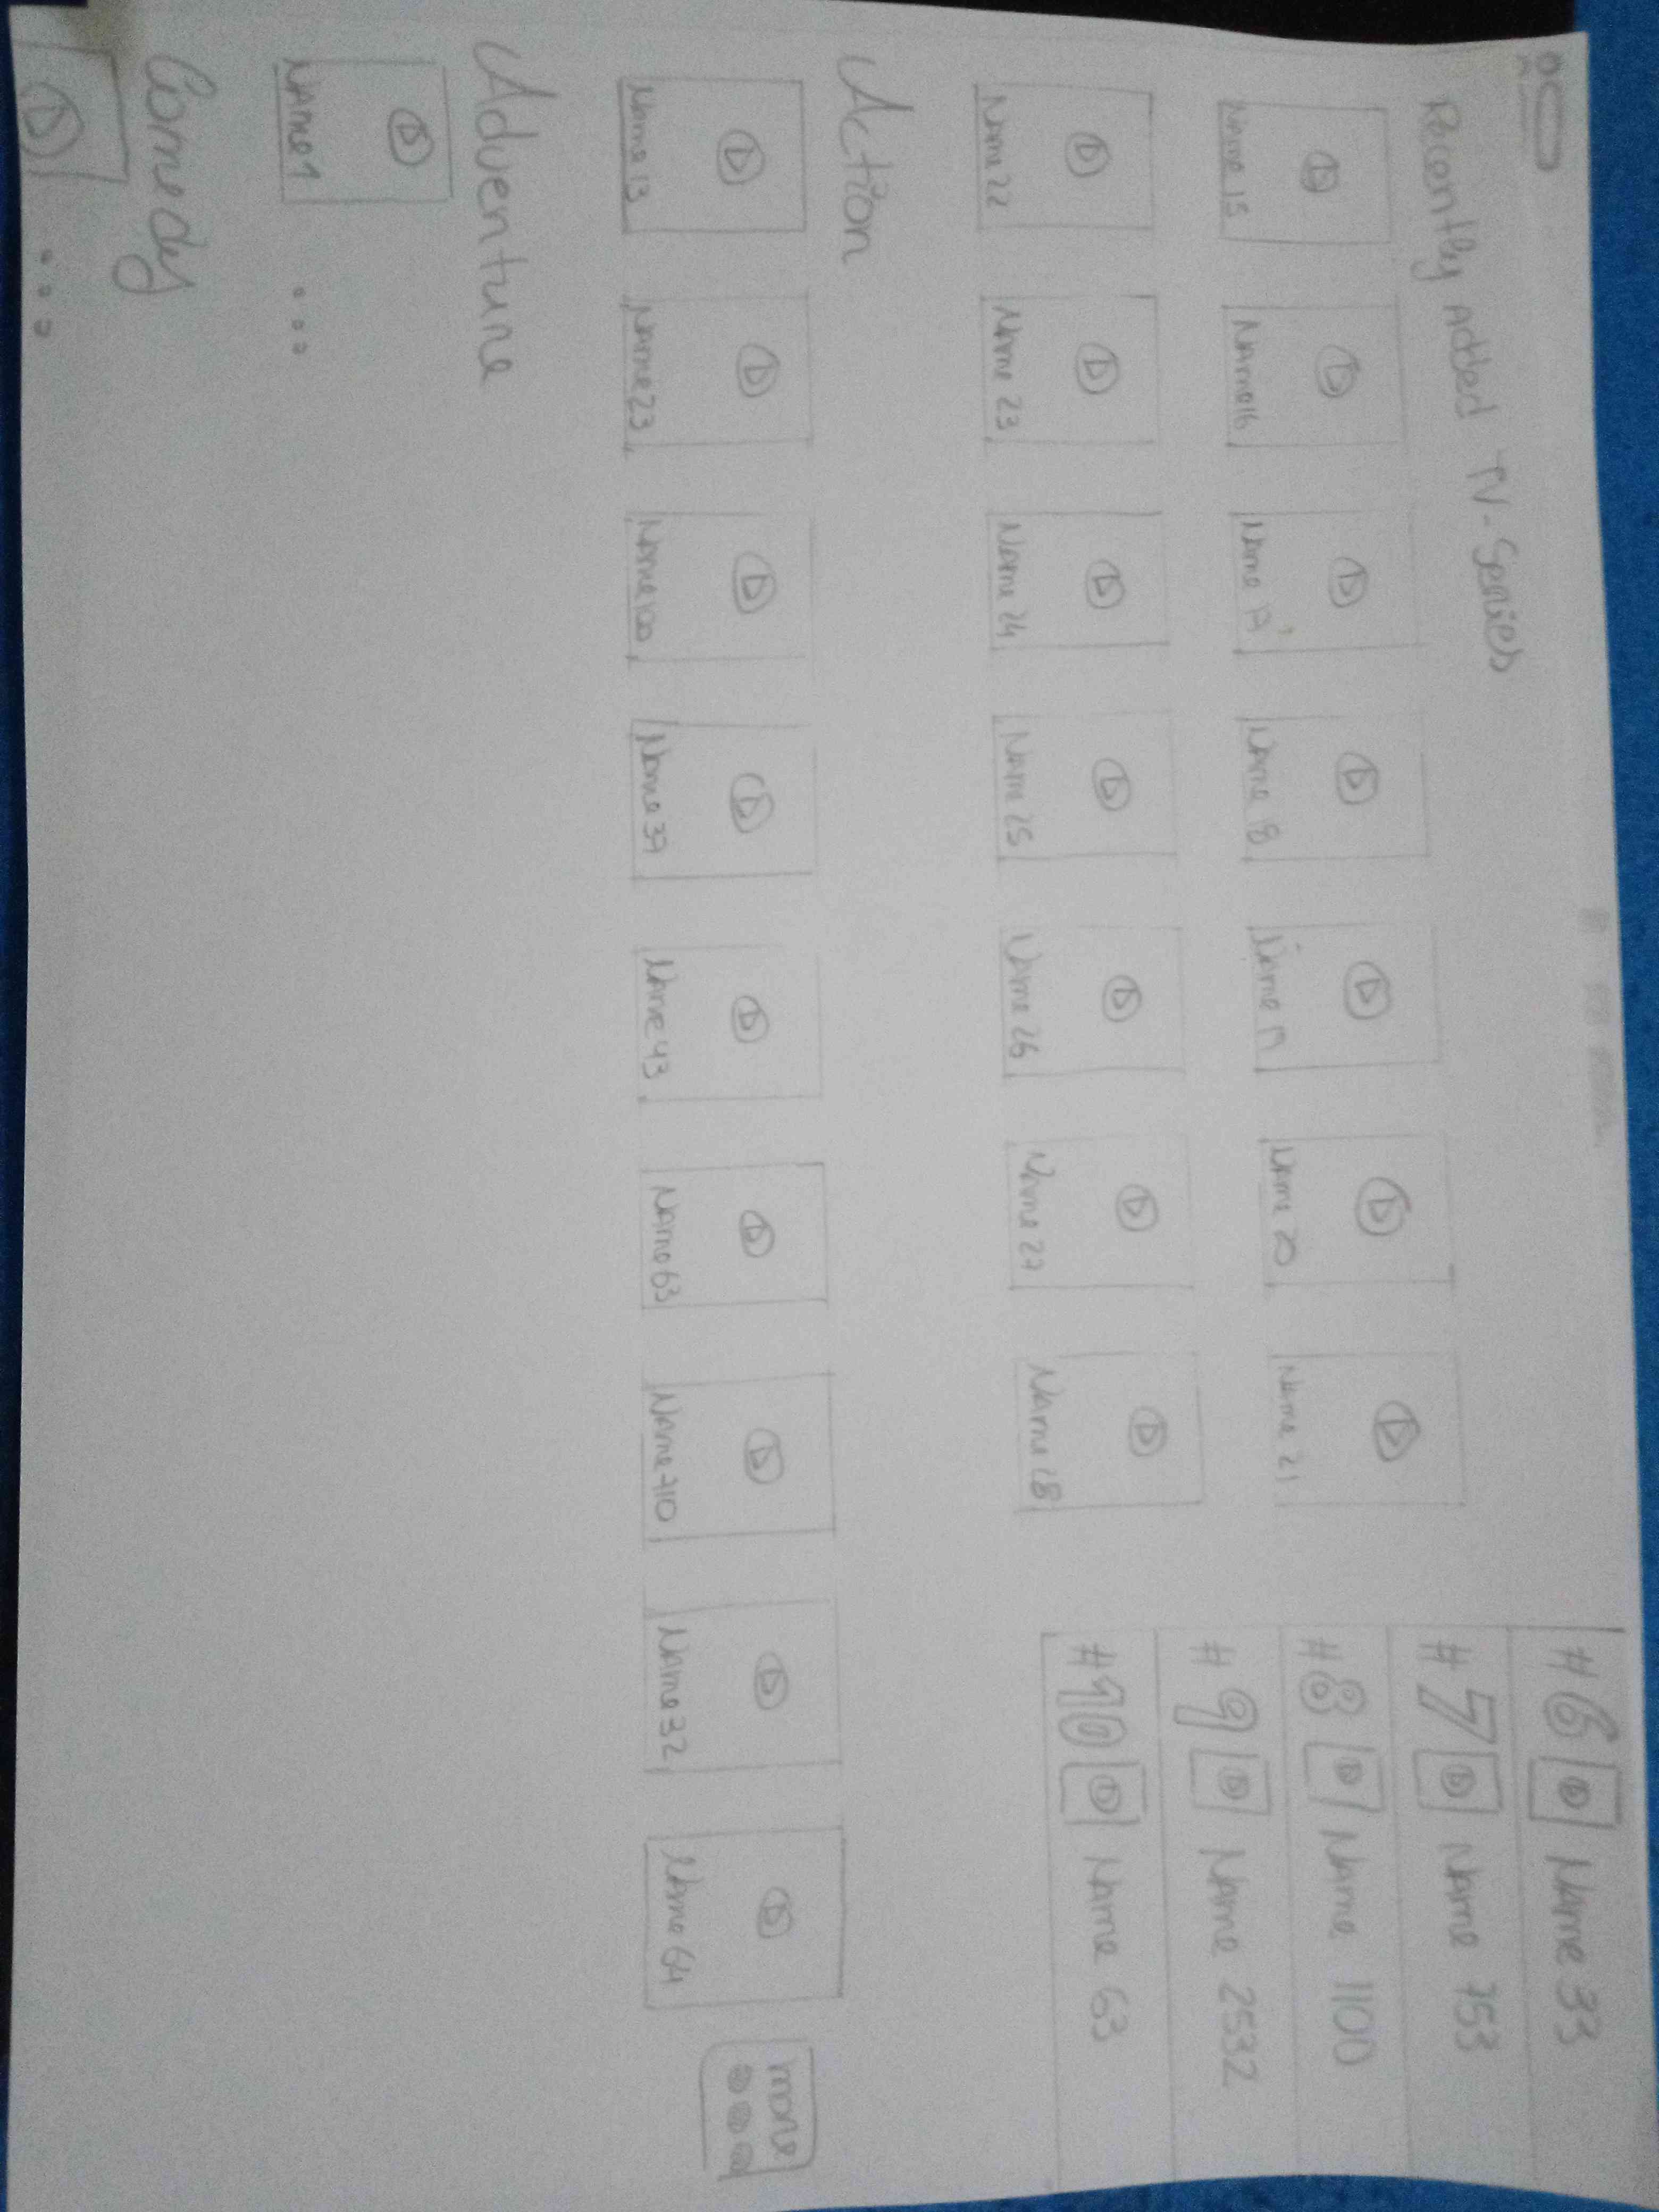 Recently Added TV-Series
Name 15 Name16 Name 17 Name 18 Name 19 Name 20 Name 21
Name 22 Name 23 Name 24 Name 25 Name 26 Name 27 Name 28
#6 Name 33
#7 Name 753
#8 Name 1100
#9 Name 2532
#10 Name 63
Action
Name 13 Name 23 Name 100 Name 37 Name 43 Name 63 Name 710 Name 32 Name 64 more
Adventure
Name 1 ...
Comedy
...